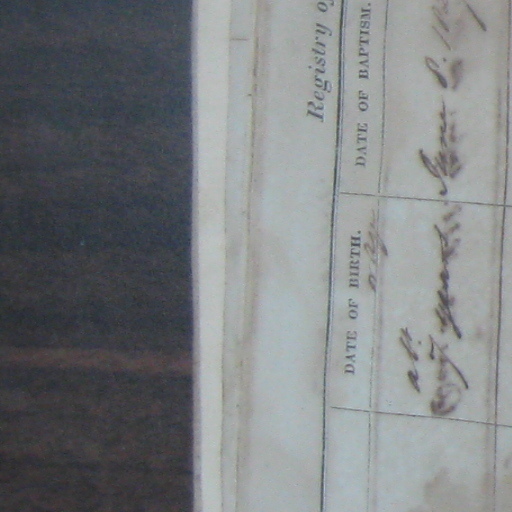 Registry of
DATE OF BIRTH.
or Age
DATE OF BAPTISM.
abt.
7 years
June 8.